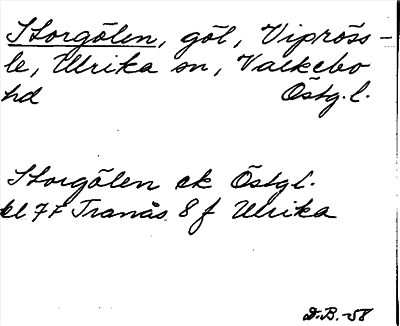 Storgölen, göl, Vipröss-
le, Ulrika sn, Valkebo
hd Östg.l.
Storgölen ek Östgl.
bl 7F Tranås 8 f Ulrika
D.B. -58